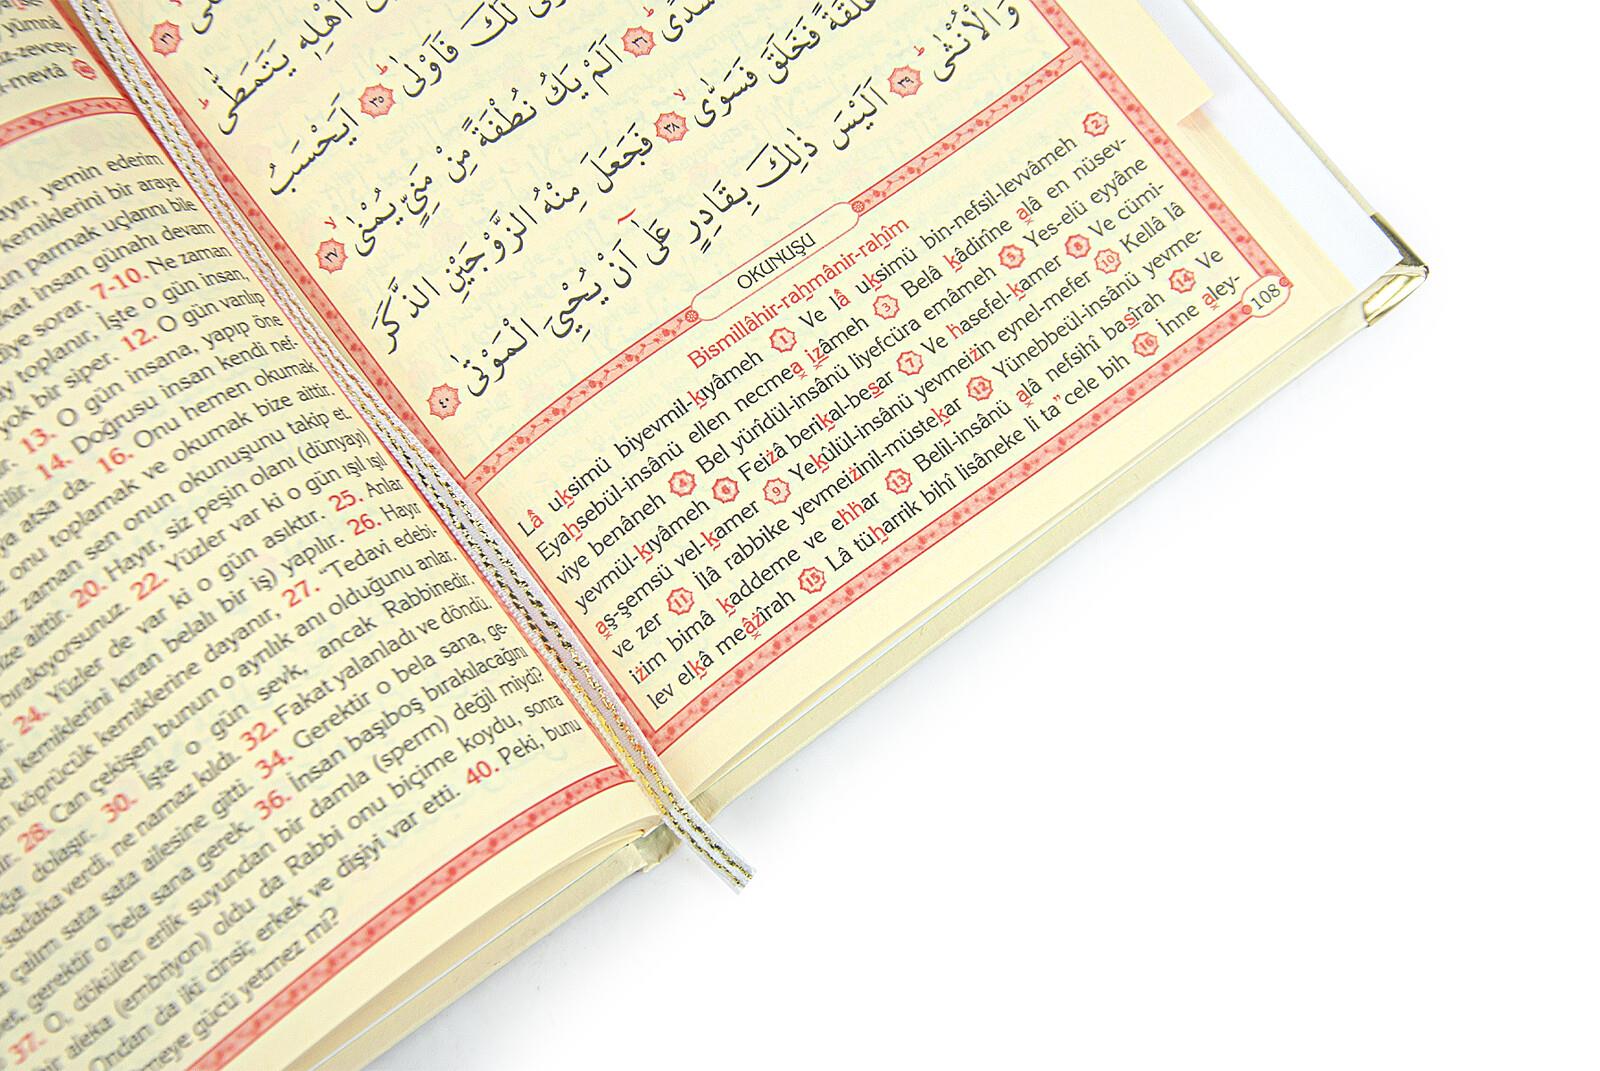 yümnâ
iz-zevcey-
l-mevtâ
yemin ederim
kemiklerini bir araya
parmak uçlarını bile
insan günahı devam
diye sorar. 7-10. Ne zaman
toplanır, İşte o gün insan,
yok bir siper. 12. O gün varılıp
13. O gün insana, yapıp öne
14. Doğrusu insan kendi nef-
atsa da. 16. Onu hemen okumak
onu toplamak ve okumak bize aittir.
zaman sen onun okunuşunu takip et.
aittir. 20. Hayır, siz peşin olanı (dünyayı)
bırakıyorsunuz. 22. Yüzler var ki o gün ışıl ışıl
24. Yüzler de var ki o gün asıktır. 25. Anlar
kemiklerini kıran belalı bir iş) yapılır. 26. Hayır
köprücük kemiklerine dayanır, 27. "Tedavi edebi-
28. Can çekişen bunun o ayrılık anı olduğunu anlar.
dolaşır. 30. İşte o gün sevk, ancak Rabbinedir.
sadaka verdi, ne namaz kıldı. 32. Fakat yalanladı ve döndü.
çalım sata sata ailesine gitti. 34. Gerektir o bela sana, ge-
gerektir o bela sana gerek. 36. İnsan başıboş bırakılacağını
37. O, dökülen erlik suyundan bir damla (sperm) değil miydi?
bir aleka (embriyon) oldu da Rabbi onu biçime koydu, sonra
Ondan da iki cinsi; erkek ve dişiyi var etti. 40. Peki, bunu
gücü yetmez mi?
اَهْلِهِ يَتَمَطّٰى
لَكَ فَاَوْلٰى ٣٥ اَيَحْسَبُ
سُدًى ٣٦ اَلَمْ يَكُ نُطْفَةً مِنْ مَنِيٍّ يُمْنٰى ٣٧
عَلَقَةً فَخَلَقَ فَسَوّٰى ٣٨ فَجَعَلَ مِنْهُ الزَّوْجَيْنِ الذَّكَرَ
وَالْاُنْثٰى ٣٩ اَلَيْسَ ذٰلِكَ بِقَادِرٍ عَلٰٓى اَنْ يُحْيِيَ الْمَوْتٰى ٤٠
OKUNUŞU
Bismillâhir-rahmânir-rahîm
Lâ uksimü biyevmil-kıyâmeh 1 Ve lâ uksimü bin-nefsil-levvâmeh 2
Eyahsebül-insânü ellen necmea izâmeh 3 Belâ kâdirîne alâ en nüsev-
viye benâneh 4 Bel yürîdül-insânü liyefcüra emâmeh 5 Yes-elü eyyâne
yevmül-kıyâmeh 6 Feizâ berikal-besar 7 Ve hasefel-kamer 8 Ve cümi-
aş-şemsü vel-kamer 9 Yekûlül-insânü yevmeizin eynel-mefer 10 Kellâ lâ
ve zer 11 İlâ rabbike yevmeizinil-müstekar 12 Yünebbeül-insânü yevme-
izim bimâ kaddeme ve ehhar 13 Belil-insânü alâ nefsihî basîrah 14 Ve
lev elkâ meâzîrah 15 Lâ tüharrik bihî lisâneke li ta"cele bih 16 İnne aley-
108